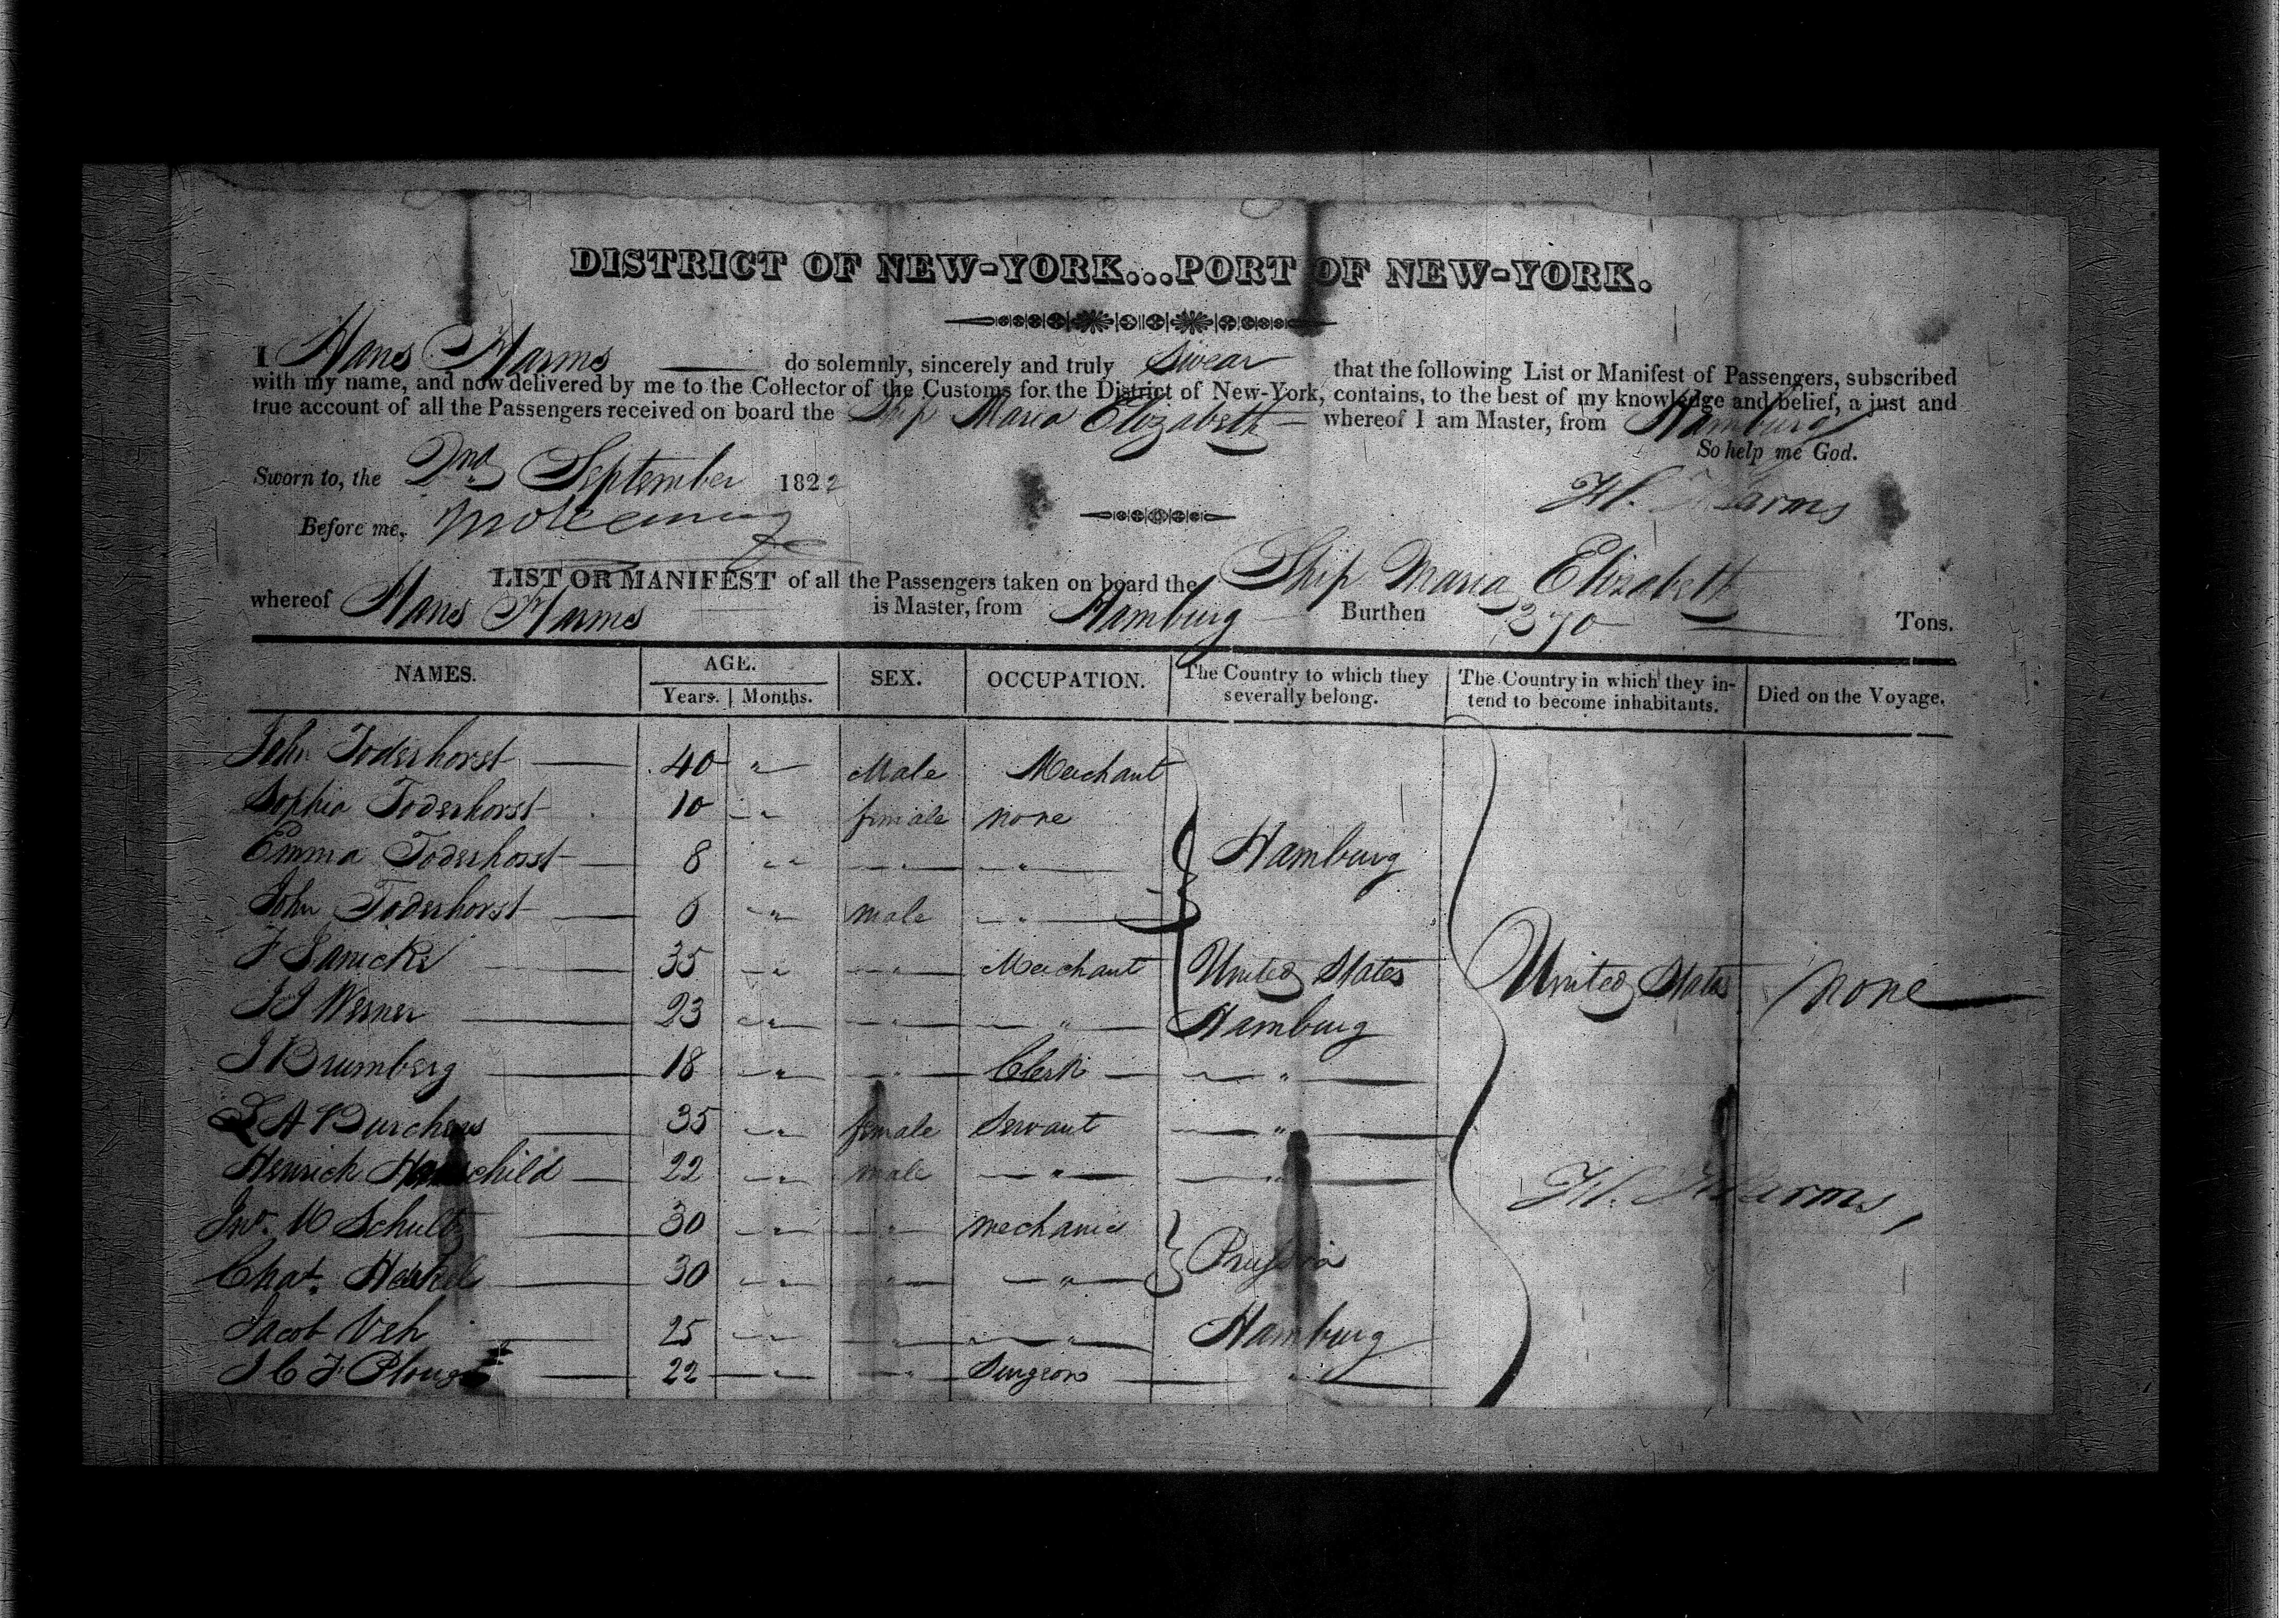 DISTRICT OF NEW-YORK...PORT OF NEW-YORK.
I Hans Harms do solemnly, sincerely and truly Swear that the following List or Manifest of Passengers, subscribed
with my name, and now delivered by me to the Collector of the Customs for the District of New-York, contains, to the best of my knowledge and belief, a just and
true account of all the Passengers received on board the Ship Maria Elizabeth whereof I am Master, from Hamburg
So help me God.
Sworn to, the 2nd September 1822
H. Harms
Before me,
LIST OR MANIFEST of all the Passengers taken on board the Ship Maria Elizabeth
whereof Hans Harms is Master, from Hamburg Burthen 370 Tons.
NAMES. AGE. SEX. OCCUPATION. The Country to which they severally belong. The Country in which they intend to become inhabitants. Died on the Voyage.
Years. Months.
John Toderhorst 40 " Male Merchant
Sophia Toderhorst 10 " female none
Emma Toderhorst 8 " " " Hamburg
John Toderhorst 6 " male "
F Janicke 35 " " Merchant United States United States none
J J Werner 23 " " " Hamburg
J Brumberg 18 " " Clerk "
A Burchens 35 " female Servant "
Henrick child 22 " male " "
H. Harms
Jno. Schultz 30 " " mechanic
Chas. 30 " " " Prussia
Jacob Veh 25 " " " Hamburg
J C F 22 " " Surgeon "